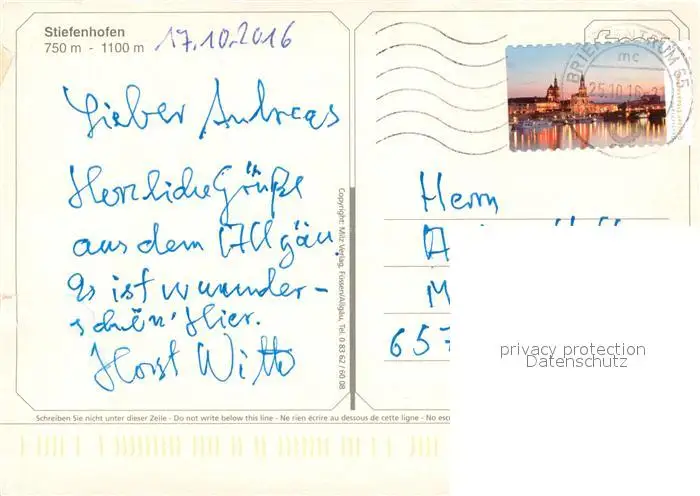 Stiefenhofen
750 m - 1100 m
17.10.2016
Lieber Andreas
Herzliche Grüße
aus dem Allgäu.
Es ist wuunder-
schön' Hier.
Horst Witt
Copyright: Milz Verlag, Füssen/Allgäu, Tel. 0 83 62 / 60 08
BRIEFZENTRUM 65
mc
25.10.16
Herrn
A
M
657
privacy protection
Datenschutz
Schreiben Sie nicht unter dieser Zeile - Do not write below this line - Ne rien écrire au dessous de cette ligne - No esc